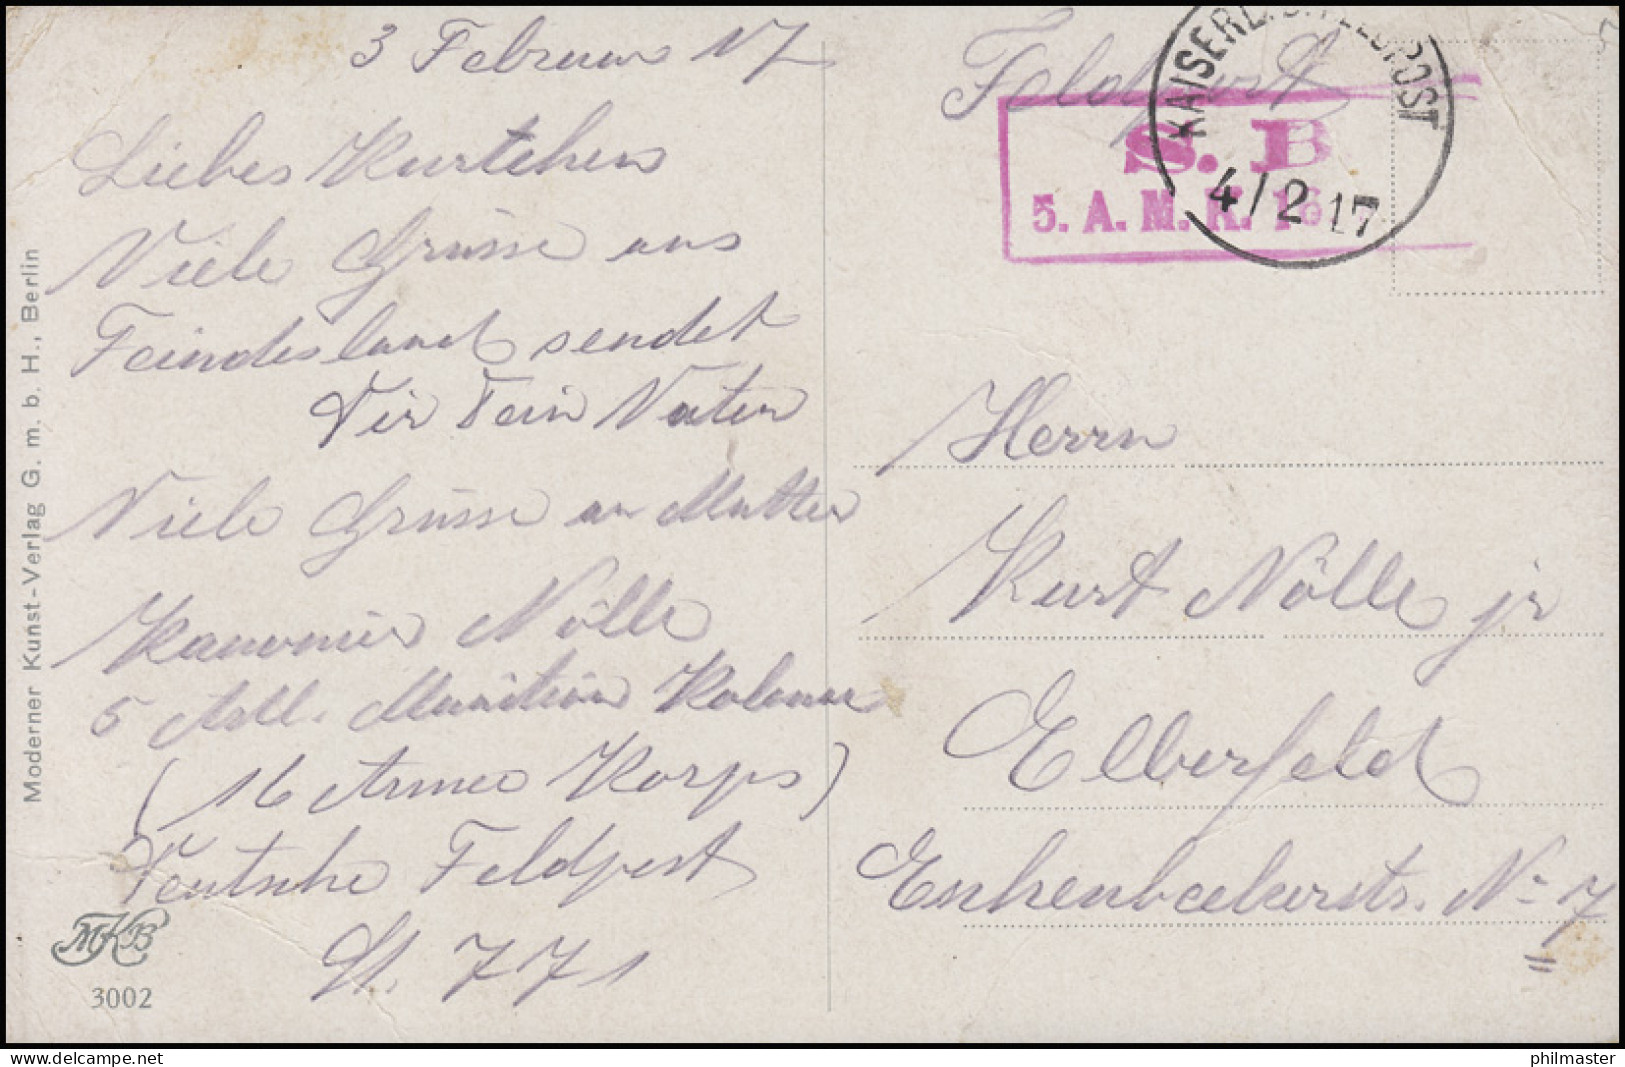 3 Februar 17
Liebes Kurtchen
Viele Grüsse aus
Feindesland sendet
Dir Dein Vater
Viele Grüsse an Mutter
Kanonier Nölle
5 Art. Munition Kolonne
(16 Armee Korps)
Deutsche Feldpost
St. 771
Moderner Kunst-Verlag G. m. b. H., Berlin
MKB
3002
Feldpost
KAISERL. D. FELDPOST
4/2 17
S. B
5. A. M. K. 16
Herrn
Kurt Nölle jr
Elberfeld
No 7
philmaster